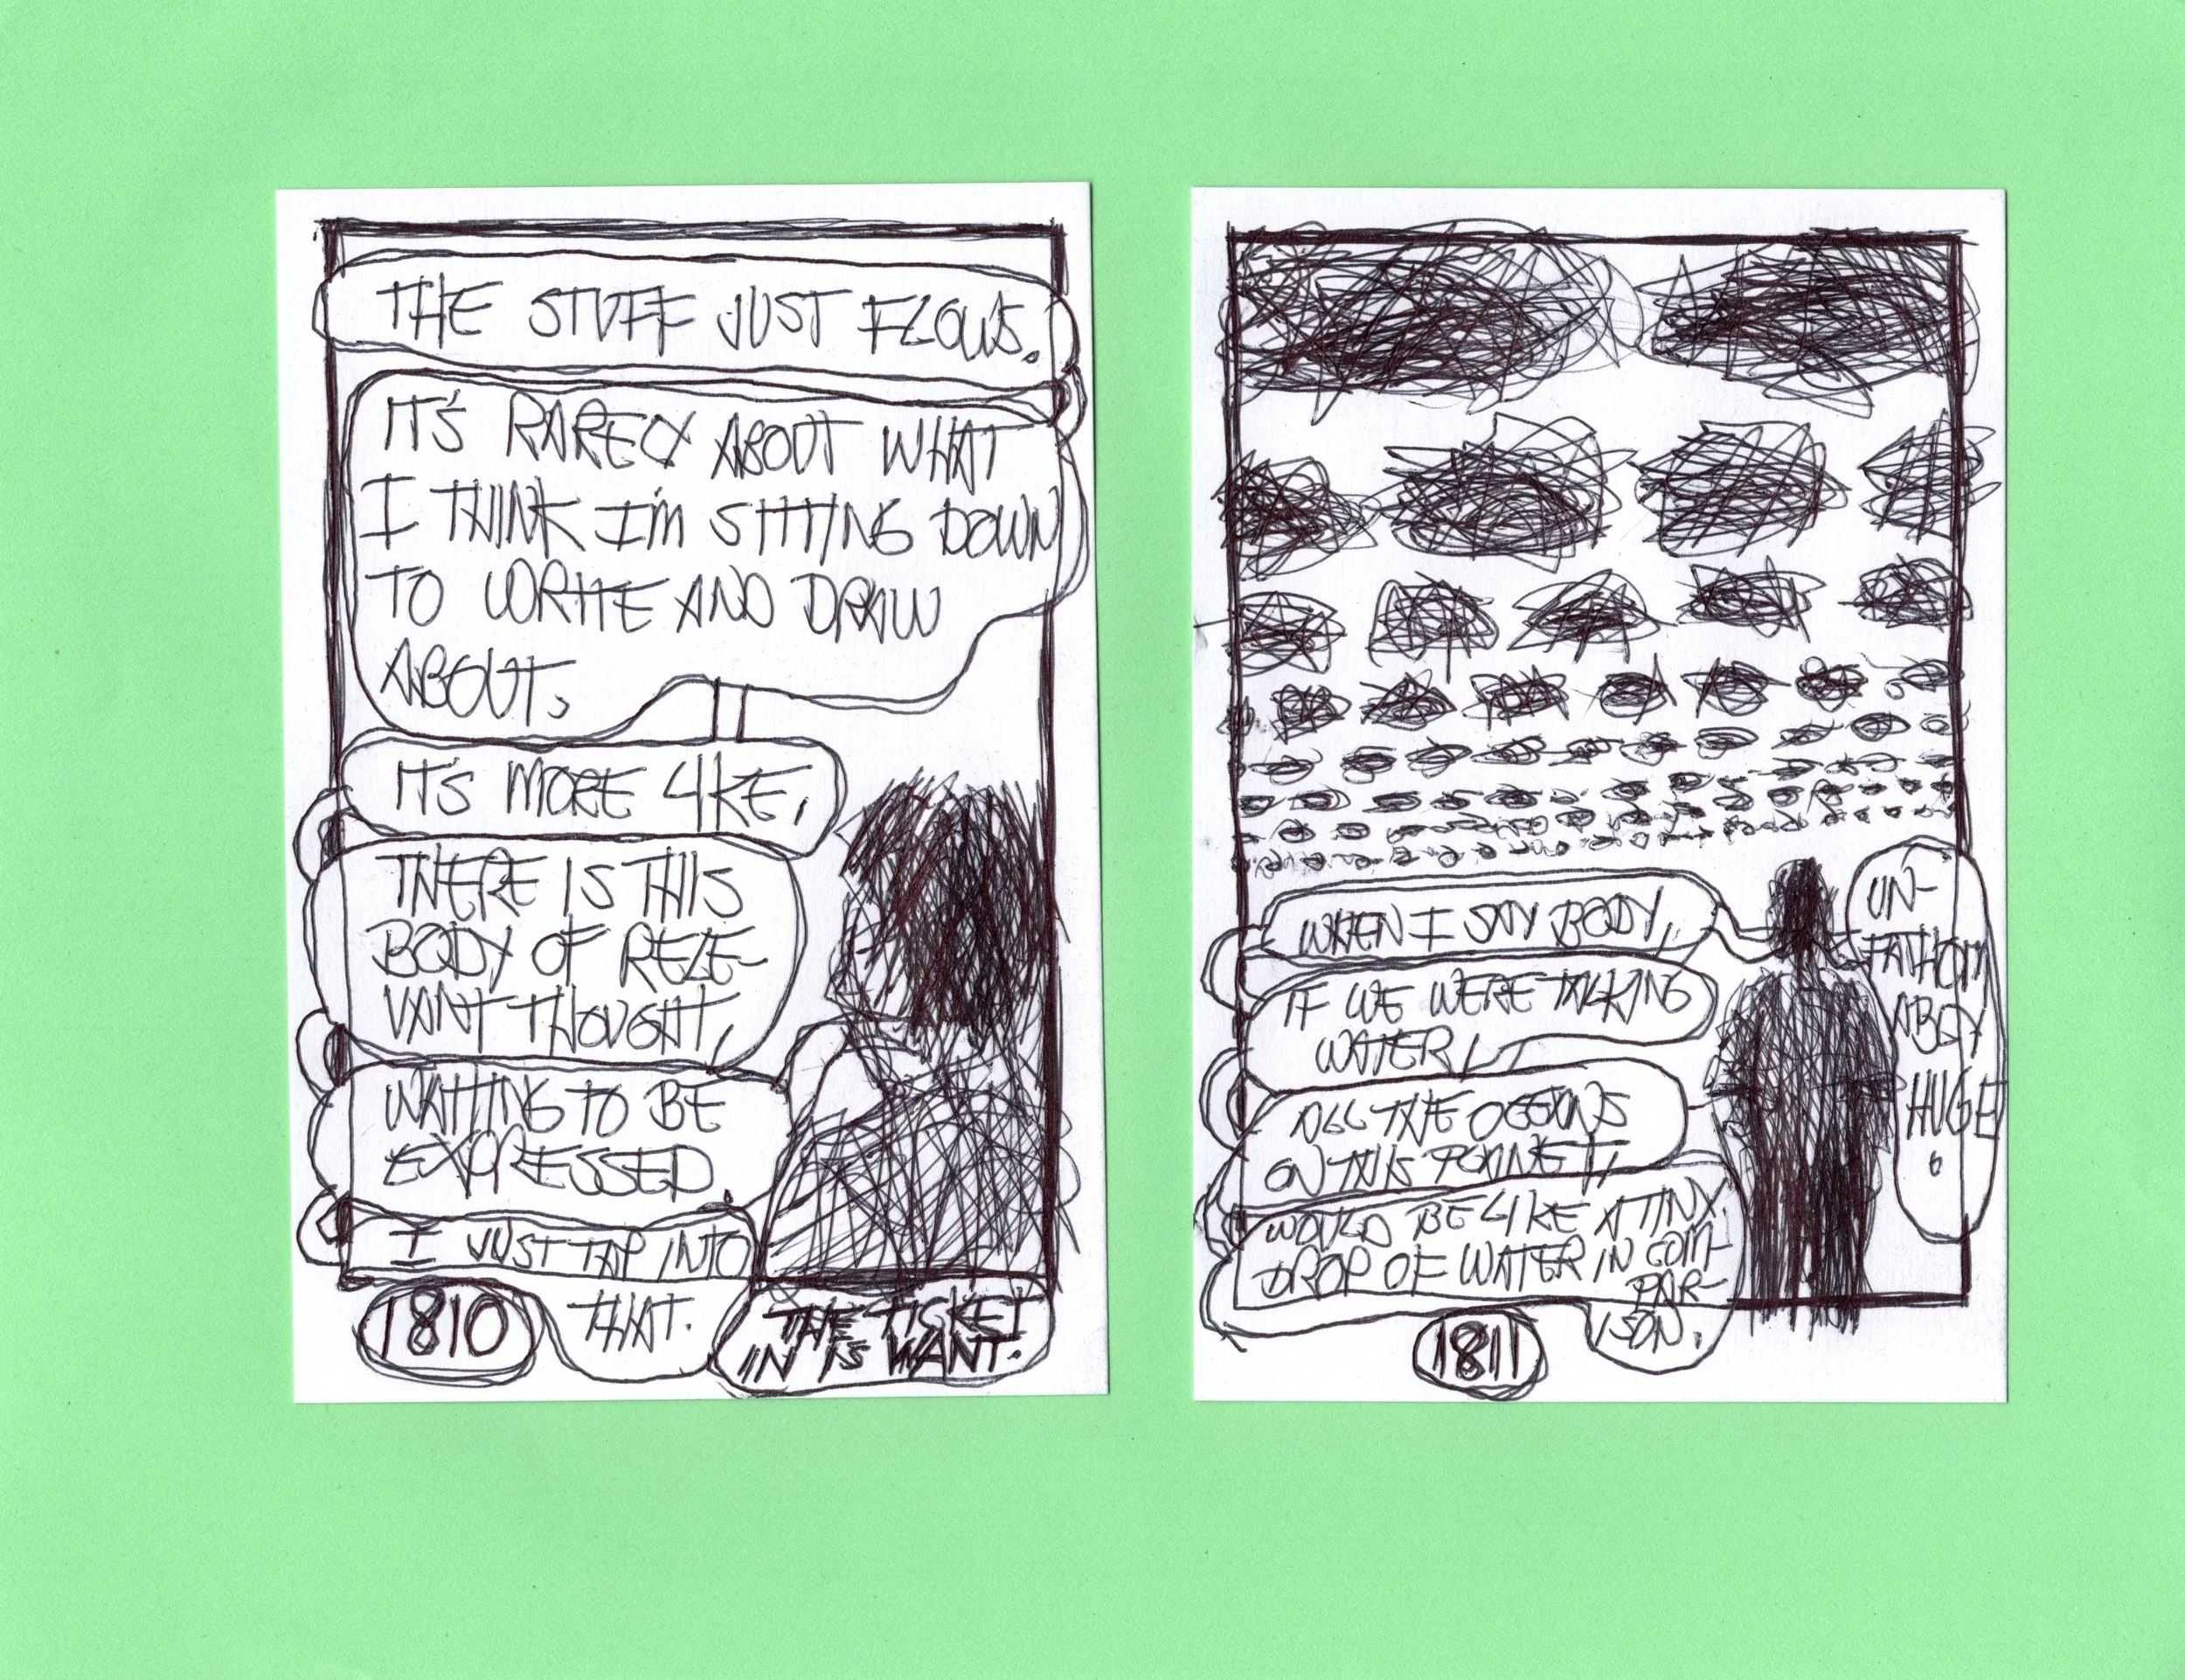 THE STUFF JUST FLOWS.
IT'S RARELY ABOUT WHAT
I THINK I'M SITTING DOWN
TO WRITE AND DRAW
ABOUT,
IT'S MORE LIKE,
THERE IS THIS
BODY OF RELE-
VANT THOUGHT,
WAITING TO BE
EXPRESSED.
I JUST TAP INTO
THAT.
THE TICKET
IN IS WANT.
1810
WHEN I SAY BODY,
IF WE WERE TALKING
WATER,
ALL THE OCEANS
ON THIS PLANET,
WOULD BE LIKE A TINY
DROP OF WATER IN COM-
PAR-
ISON.
UN-
FATHOM
ABLY
HUGE
1811